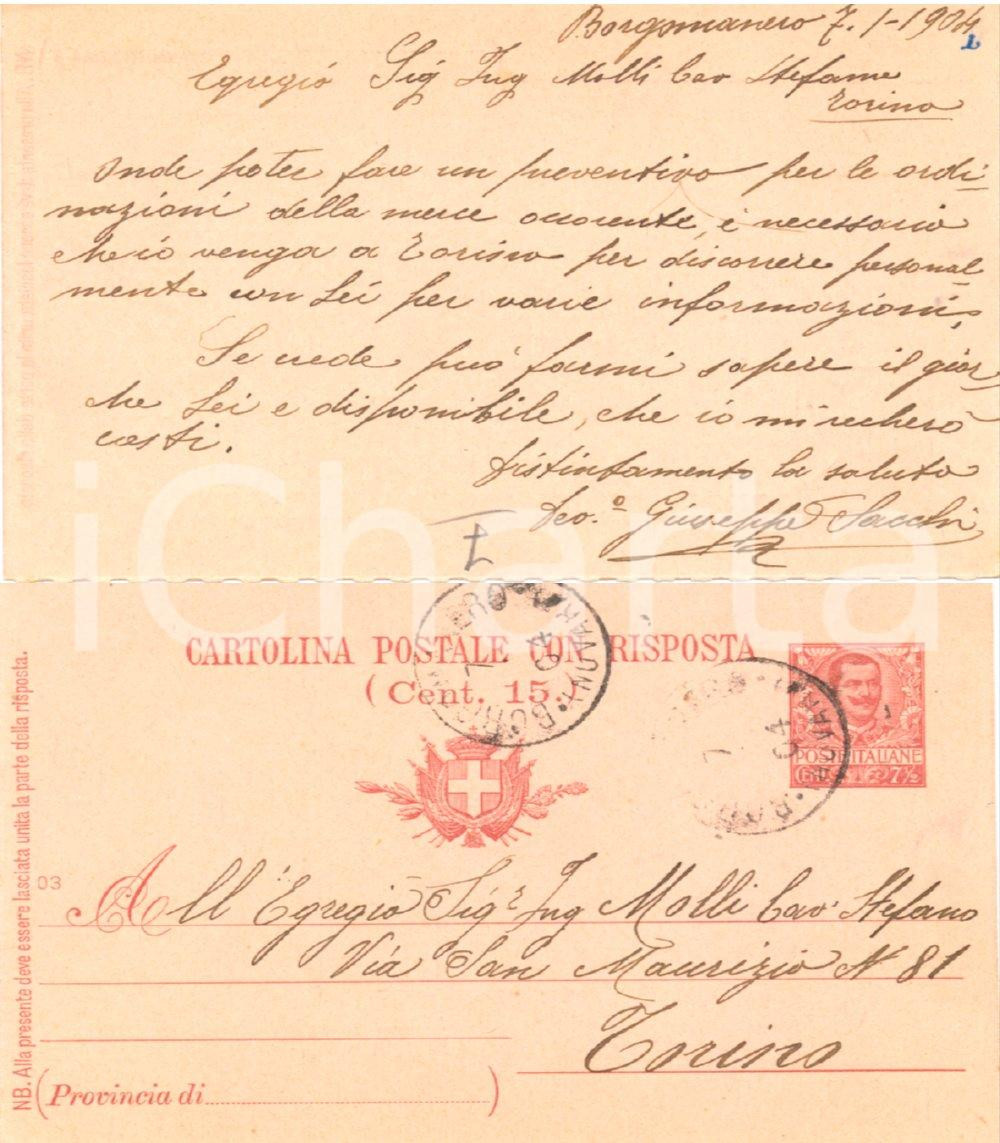 Borgomanero 7.1-1904
1
Egregio Sig Ing Molli Cav Stefano
Torino
Onde poter fare un preventivo per le ordi-
nazioni della merce occorente, è necessario
che io venga a Torino per discorrere personal-
mente con Lei per varie informazioni.
Se crede può farmi sapere il gior
che Lei e disponibile, che io mi recherò
costi.
Distintamento la saluto
Devo.° Giuseppe Sacchi
iCharta
CARTOLINA POSTALE CON RISPOSTA
(Cent. 15.)
7 04
BORGOMANERO (NOVARA)
POSTE ITALIANE
Cent. 7½
7 04
03
All'Egregio Sigr Ing Molli Cav Stefano
Via San Maurizio N 81
Torino
(Provincia di)
NB. Alla presente deve essere lasciata unita la parte della risposta.